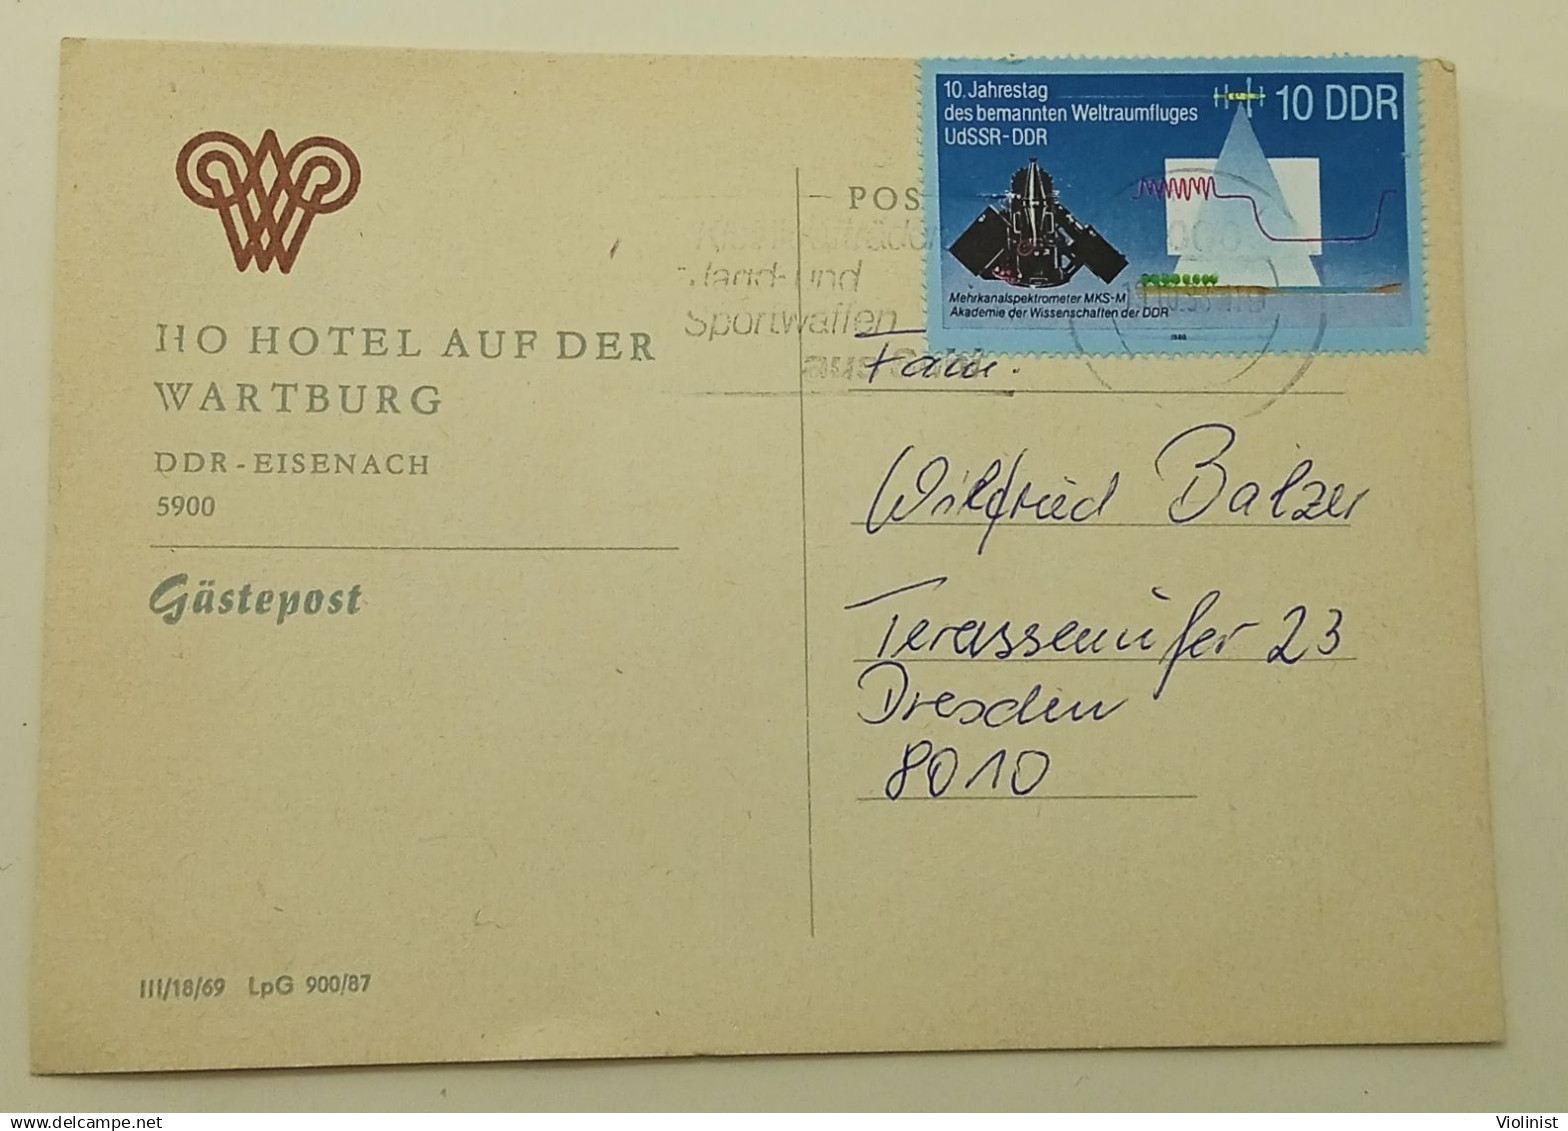 HO HOTEL AUF DER
WARTBURG
DDR - EISENACH
5900
Gästepost
III/18/69 LpG 900/87
10. Jahrestag
des bemannten Weltraumfluges
UdSSR-DDR
10 DDR
Mehrkanalspektrometer MKS-M
Akademie der Wissenschaften der DDR
1988
POS
Hand- und
Sportwaffen
aus
Fam.
Wilfried Balzer
Terassenufer 23
Dresden
8010
Violinist